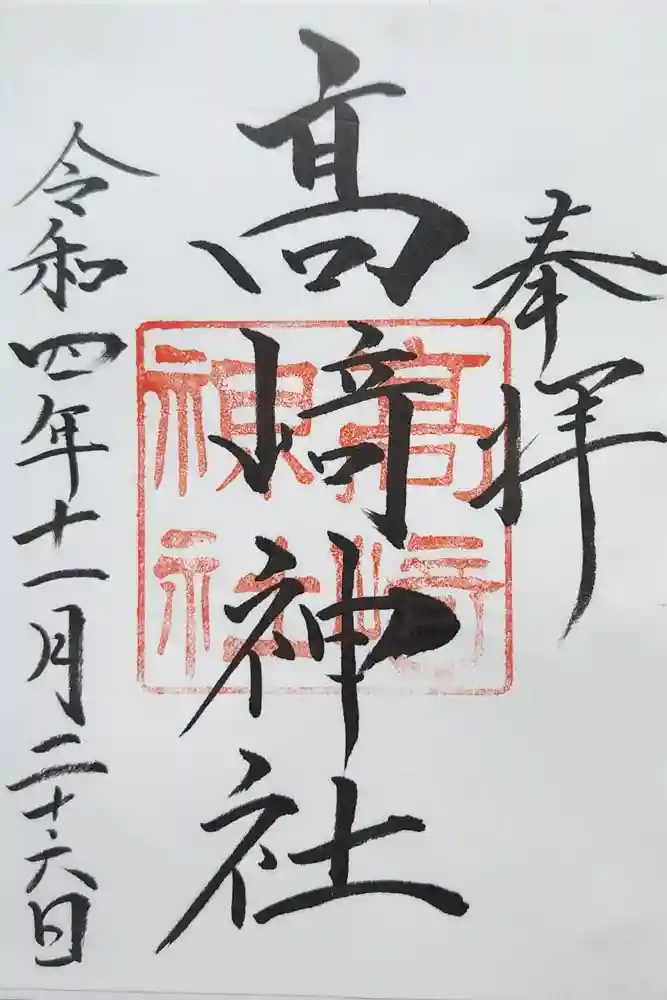 奉拝
髙﨑神社
髙﨑
神社
令和四年十一月二十六日